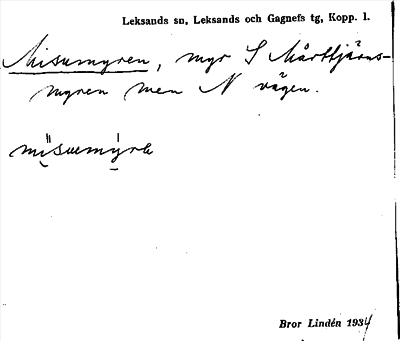 Leksands sn, Leksands och Gagnefs tg, Kopp. l.
Misumyren, myr S Mårttjärns-
myren men N vägen.
misuemyrɐ
Bror Lindén 1934